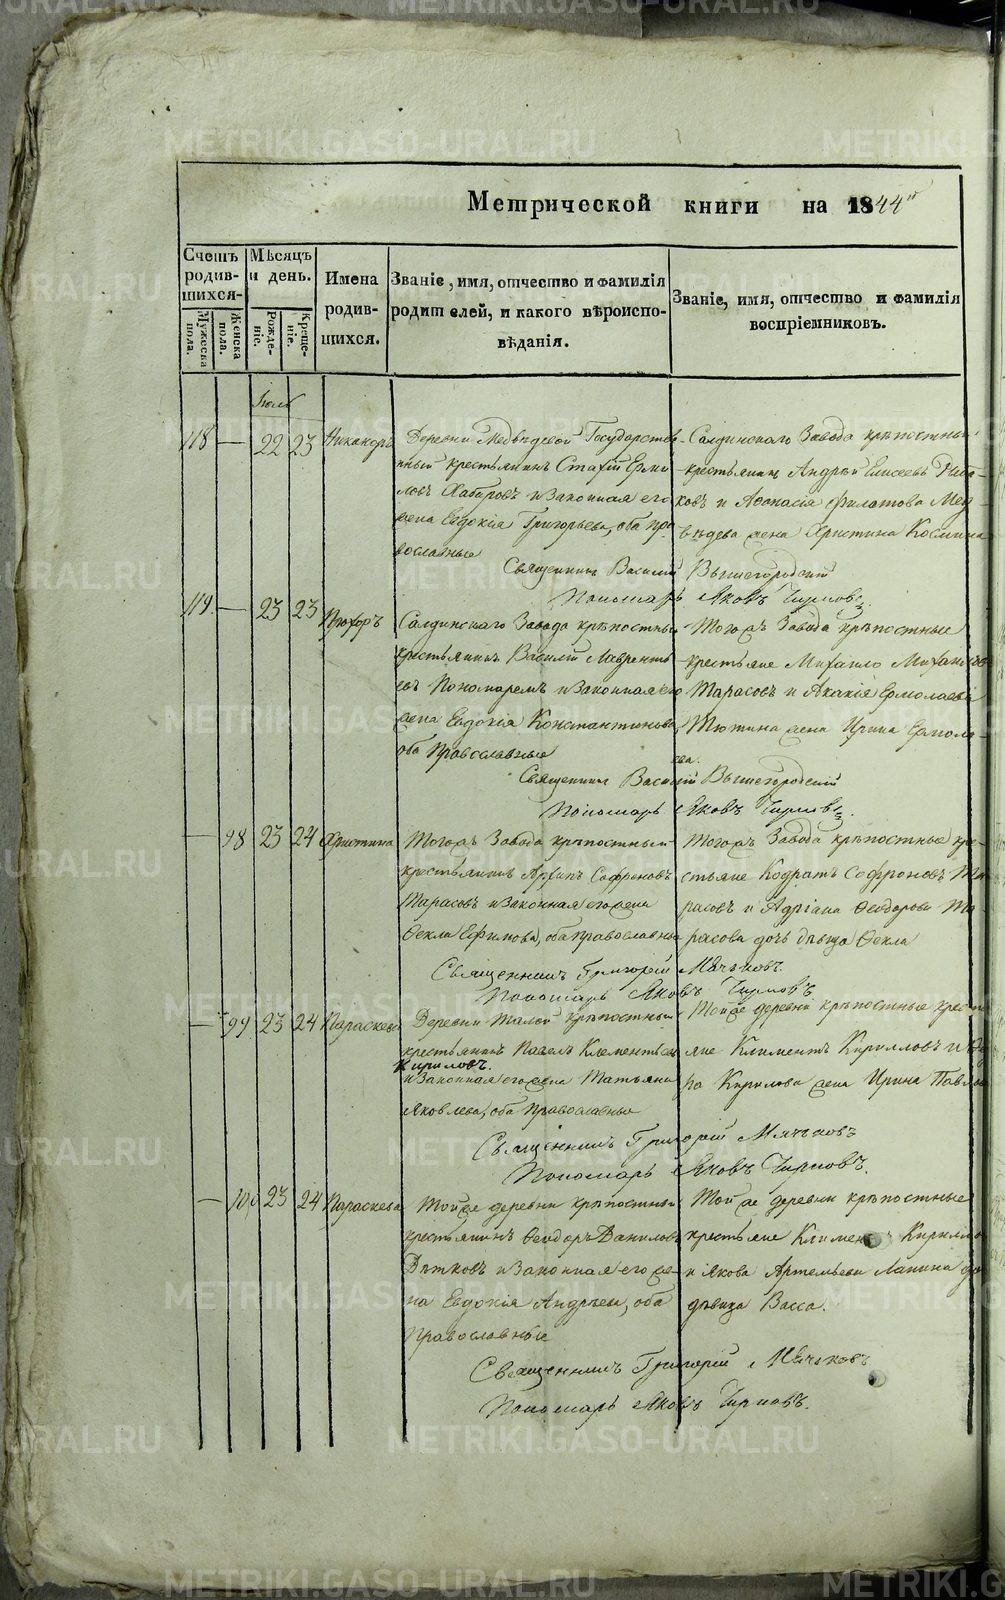 METRIKI.GASO-URAL.RU
Метрической книги на 1844й
Счетъ родившихся.
Мужеска пола.
Женска пола.
Мѣсяцъ и день.
Рожденіе.
Крещеніе.
Имена родившихся.
Званіе, имя, отчество и фамилія родителей, и какого вѣроисповѣданія.
Званіе, имя, отчество и фамилія воспріемниковъ.
Іюль
118 — 22 23 Никаноръ
Деревни Медвѣдевой Государствен-
ный крестьянинъ Стахій Ерми-
ловъ Хабаровъ и законная его
жена Евдокія Григорьева, оба пра-
вославные
Салдинскаго Завода крѣпостный
крестьянинъ Андрей Елисеевъ
ковъ и Афанасія Филатова Мед-
вѣдева жена Христина Космина
Священникъ Василій Вышегородскій
Пономарь Яковъ Чирковъ.
119. — 23 23 Прохоръ
Салдинскаго Завода крѣпостный
крестьянинъ Василій Лавренть-
евъ Пономаревъ и законная его
жена Евдокія Константинова
оба Православные
Тогожъ Завода крѣпостные
крестьяне Михайло Михайловъ
Тарасовъ и Акакія Ермолаева
Тютина жена Ирина Ермола-
ева.
Священникъ Василій Вышегородскій
Пономарь Яковъ Чирковъ.
— 98 23 24 Христина
Тогожъ Завода крѣпостный
крестьянинъ Архипъ Софроновъ
Тарасовъ и законная его жена
Ѳекла Ефимова, оба православные
Тогожъ Завода крѣпостные кре-
стьяне Кодратъ Софроновъ Та-
расовъ и Адріана Ѳеодорова Та-
расова дочь дѣвица Ѳекла
Священникъ Григорій Мячковъ.
Пономарь Яковъ Чирковъ.
— 99 23 24 Параскева
Деревни Талой крѣпостный
крестьянинъ Павелъ Клементьевъ
Кириловъ.
и законная его жена Татьяна
Яковлева, оба Православные
Тойже деревни крѣпостные кресть-
яне Климентъ Кирилловъ и
Кирилова жена Ирина Павлова
Священникъ Григорій Мячковъ
Пономарь Яковъ Чирковъ.
— 100 23 24 Параскева
Тойже деревни крѣпостный
крестьянинъ Ѳеодоръ Даниловъ
Дѣтковъ и законная его же-
на Евдокія Андреева, оба
Православные
Тойже деревни крѣпостные
крестьяне Климентъ Кирилло
и Якова Артемьева Лапина
дѣвица Васса.
Священникъ Григорій Мячковъ
Пономарь Яковъ Чирковъ.